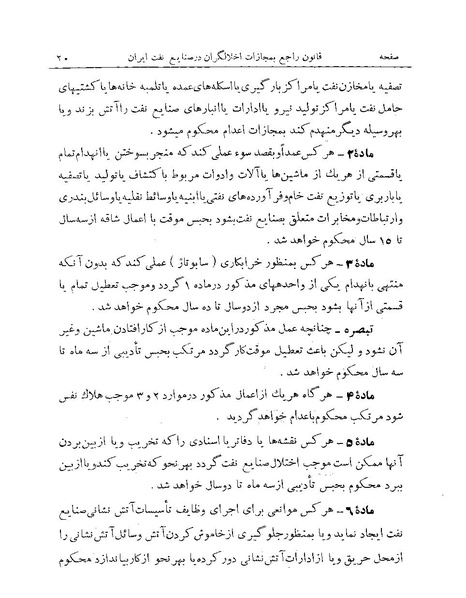 صفحه قانون راجع بمجازات اخلالگران در صنایع نفت ایران ۲۰
تصفیه یا مخازن نفت یا مراکز بارگیری یا اسکله‌های عمده یا تلمبه خانه‌ها یا کشتیهای
حامل نفت یا مراکز تولید نیرو یا ادارات یا انبارهای صنایع نفت را آتش بزند ویا
بهر وسیله دیگر منهدم کند بمجازات اعدام محکوم میشود .
مادۀ ۲ ـ هر کس عمداً و بقصد سوء عملی کند که منجر بسوختن یا انهدام تمام
یا قسمتی از هر یک از ماشین‌ها یا آلات و ادوات مربوط با کتشاف یا تولید یا تصفیه
یا باربری یا توزیع نفت خام و فرآورده‌های نفتی یا ابنیه یا وسائط نقلیه یا وسائل بندری
و ارتباطات و مخابرات متعلق بصنایع نفت بشود بحبس موقت با اعمال شاقه از سه سال
تا ۱۵ سال محکوم خواهد شد .
مادۀ ۳ ـ هر کس بمنظور خرابکاری ( سابوتاژ ) عملی کند که بدون آنکه
منتهی بانهدام یکی از واحدهای مذکور در ماده ۱ گردد موجب تعطیل تمام یا
قسمتی از آنها بشود بحبس مجرد از دو سال تا ده سال محکوم خواهد شد .
تبصره ـ چنانچه عمل مذکور در این ماده موجب از کار افتادن ماشین وغیر
آن نشود و لیکن باعث تعطیل موقت کار گردد مرتکب بحبس تأدیبی از سه ماه تا
سه سال محکوم خواهد شد .
مادۀ ۴ ـ هر گاه هر یک از اعمال مذکور در موارد ۲ و ۳ موجب هلاك نفس
شود مرتکب محکوم باعدام خواهد گردید .
مادۀ ۵ ـ هر کس نقشه‌ها یا دفاتر یا اسنادی را که تخریب ویا از بین بردن
آنها ممکن است موجب اختلال صنایع نفت گردد بهر نحو که تخریب کند ویا از بین
ببرد محکوم بحبس تأدیبی از سه ماه تا دو سال خواهد شد .
مادۀ ۶ ـ هر کس موانعی برای اجرای وظایف تأسیسات آتش نشانی صنایع
نفت ایجاد نماید ویا بمنظور جلوگیری از خاموش کردن آتش وسائل آتش نشانی را
از محل حریق ویا از ادارات آتش نشانی دور کرده یا بهر نحو از کار بیاندازد محکوم